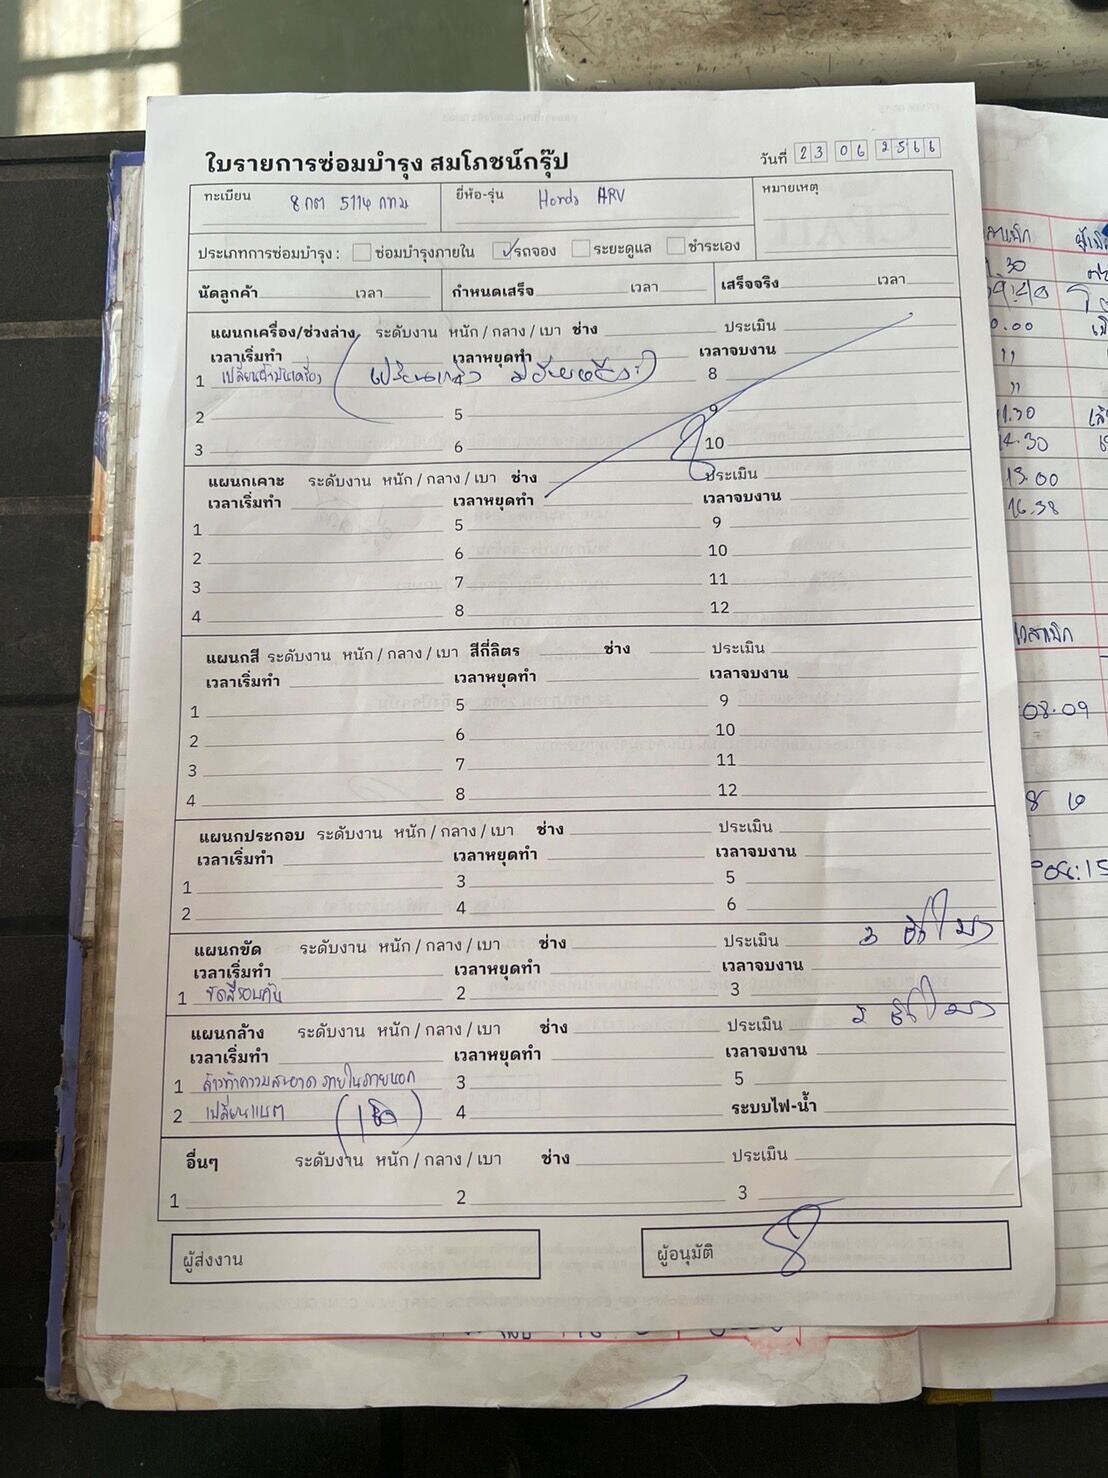 ใบรายการซ่อมบำรุง สมโภชน์กรุ๊ป
วันที่ 23 06 2566
ทะเบียน 8 กต 5114 กทม
ยี่ห้อ-รุ่น Honda
หมายเหตุ
ประเภทการซ่อมบำรุง : ซ่อมบำรุงภายใน รถจอง ระยะดูแล ชำระเอง
นัดลูกค้า เวลา กำหนดเสร็จ เวลา เสร็จจริง เวลา
แผนกเครื่อง/ช่วงล่าง ระดับงาน หนัก / กลาง / เบา ช่าง ประเมิน
เวลาเริ่มทำ เวลาหยุดทำ เวลาจบงาน
1 เปลี่ยนน้ำมันเครื่อง 8
2 5 9
3 6 10
แผนกเคาะ ระดับงาน หนัก / กลาง / เบา ช่าง ประเมิน
เวลาเริ่มทำ เวลาหยุดทำ เวลาจบงาน
1 5 9
2 6 10
3 7 11
4 8 12
แผนกสี ระดับงาน หนัก / กลาง / เบา สีกี่ลิตร ช่าง ประเมิน
เวลาเริ่มทำ เวลาหยุดทำ เวลาจบงาน
1 5 9
2 6 10
3 7 11
4 8 12
แผนกประกอบ ระดับงาน หนัก / กลาง / เบา ช่าง ประเมิน
เวลาเริ่มทำ เวลาหยุดทำ เวลาจบงาน
1 3 5
2 4 6
แผนกขัด ระดับงาน หนัก / กลาง / เบา ช่าง ประเมิน
เวลาเริ่มทำ เวลาหยุดทำ เวลาจบงาน
1 ขัดสีรอบคัน 2 3
แผนกล้าง ระดับงาน หนัก / กลาง / เบา ช่าง ประเมิน
เวลาเริ่มทำ เวลาหยุดทำ เวลาจบงาน
1 ล้างทำความสะอาด ภายในภายนอก 3 5
2 เปลี่ยนแบต 4 ระบบไฟ-น้ำ
อื่นๆ ระดับงาน หนัก / กลาง / เบา ช่าง ประเมิน
1 2 3
ผู้ส่งงาน
ผู้อนุมัติ
11.30
14.30
13.00
16.38
08.09